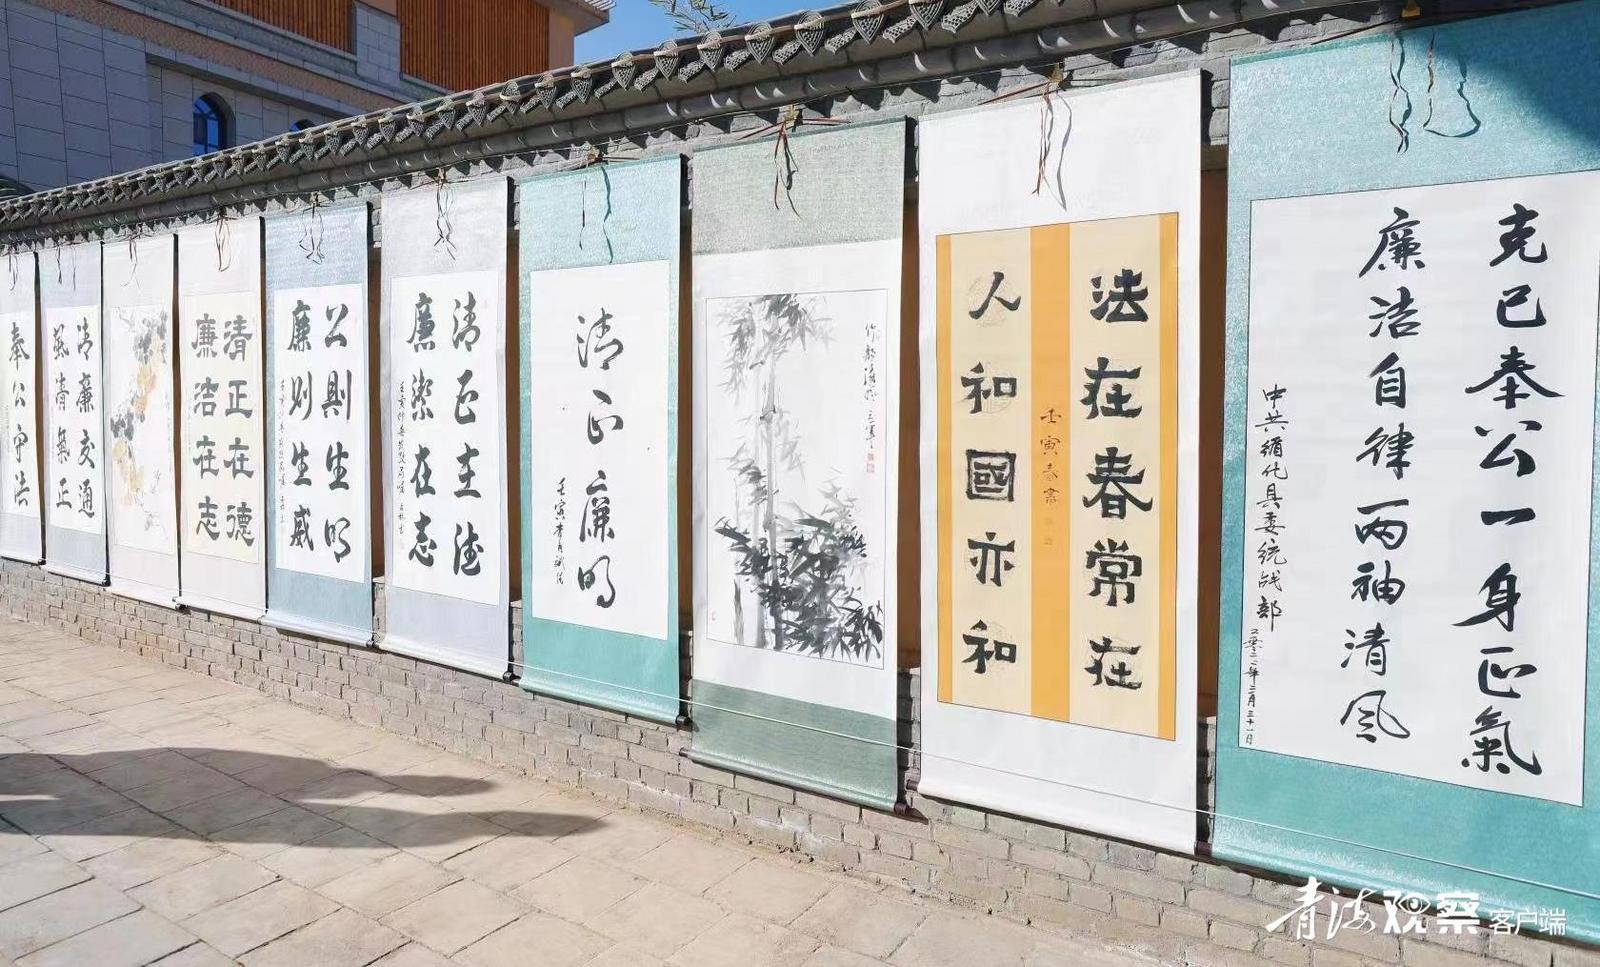 克己奉公一身正氣
廉洁自律两袖清风
中共循化县委统战部
二零二二年三月三十一日
法在春常在
壬寅春書
人和國亦和
清正廉明
清正在德
廉潔在志
公則生明
廉则生威
清正在德
廉洁在志
清廉交通
風清氣正
奉公守法
青海观察 客户端